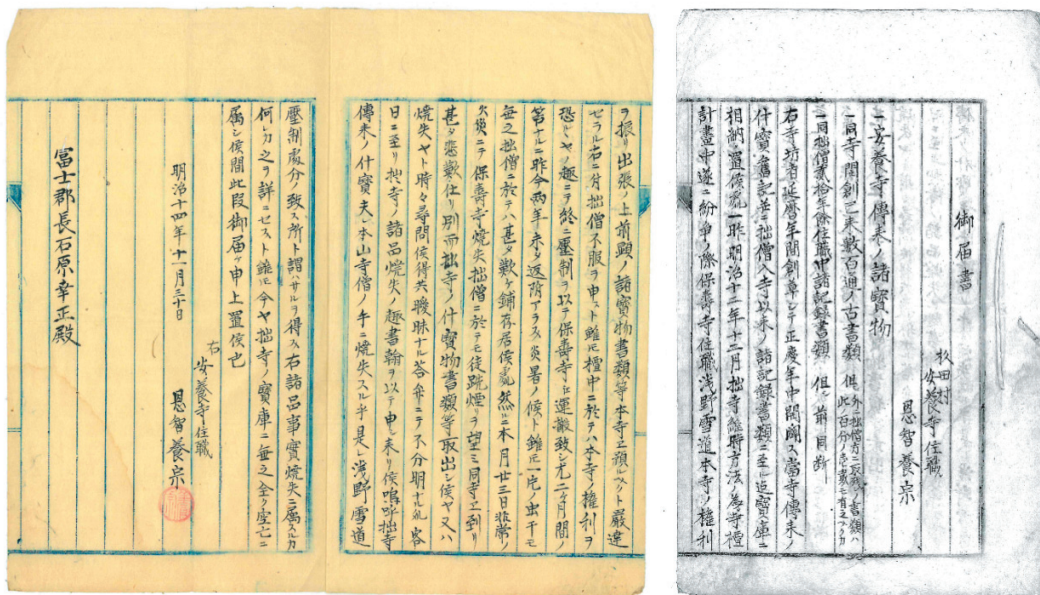 御届書
杉田村
安養寺住職
恩智養宗
一安養寺傳来ノ諸寶物
一同寺開創已来数百通ノ古書類 但シ外ニ拙僧方ニ反哉ノ書類ハ
此ノ百分ノ
一同拙僧貳拾年餘住職中諸記録書類 但シ前同断
右寺坊者延暦年間創章シテ正慶年中開闢ス當寺傳来ノ
什寶舊記並ニ拙僧入寺以来ノ諸記録書類ニ至ル迄寶庫ニ
相納メ置候處一昨明治十二年十二月拙寺維持方法ノ為寺檀
計畫中遂ニ紛争ノ際保壽寺住職浅野雪道本寺ノ権利
ヲ振リ出張ノ上前顕ノ諸寶物書類等本寺エ預ルヘクト嚴達
セラル右ニ付拙僧不服ヲ申スト雖モ檀中ニ於テハ本寺ノ権利ヲ
恐ルヤノ趣ニテ終ニ壓制ヲ以テ保壽寺エ運搬致シ尤二ヶ月間ノ
第ナルニ昨今両年未タ返附アラス炎暑ノ候ト雖モ一片ノ虫干モ
毎之拙僧ニ於テハ甚タ歎ケ鋪存居候處然ルニ本月廿三日非常ノ
火災ニテ保壽寺焼失拙僧ニ於テモ徒跣煙リヲ望ミ同寺エ到リ
甚タ悲歎仕リ別而拙寺ノ什寶物書類等取出シ候ヤ又ハ
焼失ヤト時々尋問候得共曖昧ナル答弁ニテ不分明ナル処客
日ニ至リ拙寺ノ諸品焼失ノ趣書翰ヲ以テ申シ来リ候嗚呼拙寺
傳来ノ什寶夫レ本山寺僧ノ手ニ焼失スル乎是レ浅野雪道
壓制處分ノ致ス所ト謂ハサルヲ得ス右諸品事實焼失ニ属スルカ
何レカ之ヲ詳ニセスト雖モ今ヤ拙寺ノ寶庫ニ毎之全ク空亡ニ
属シ候間此段御届ケ申上置候也
明治十四年十一月三十日
右
安養寺住職
恩智養宗
冨士郡長石原幸正殿